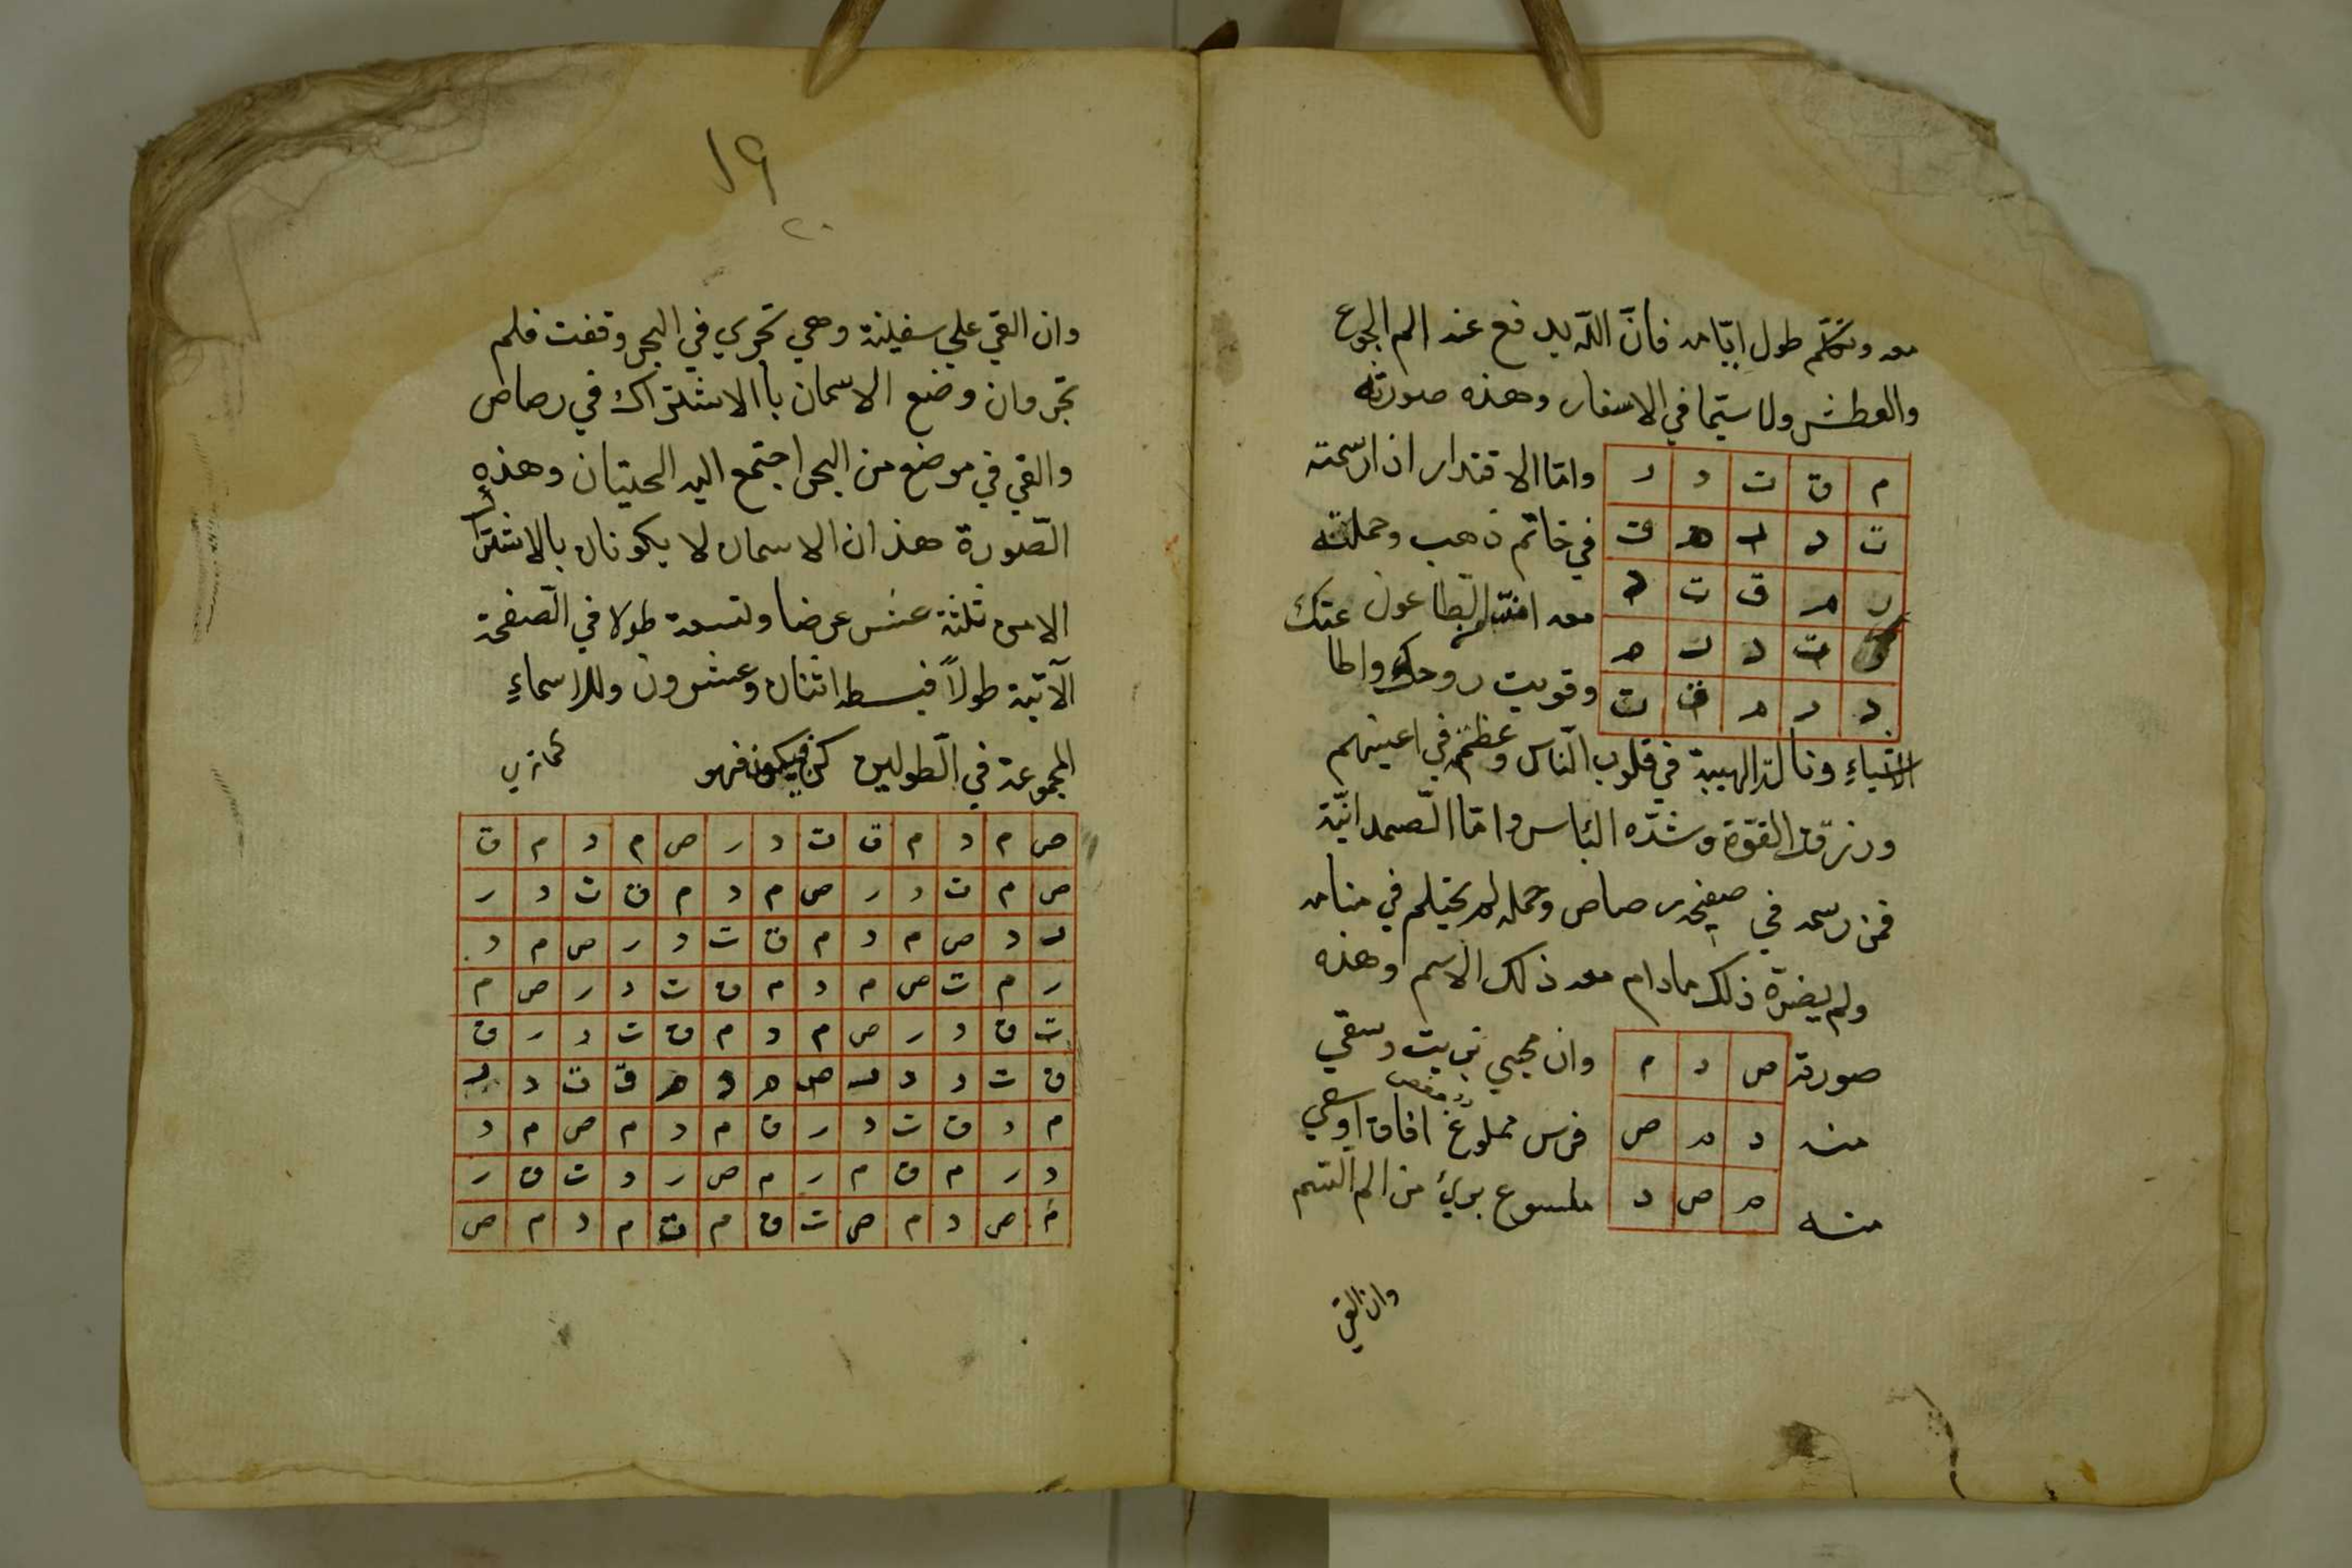 معه وتكلم طول ايامه فان الله يدفع عنه الم الجوع
والعطش ولا سيما في الاسفار وهذه صورته
م ق ت د ر
ت د ر م ق
ر م ق ت د
ق ت د ر م
د ر م ق ت
واما الاقتدار اذا رسمته
في خاتم ذهب وحملته
معه الطاعون عنك
وقويت روحك واطا
الاشياء ونالته الهيبة في قلوب الناس وعظم في اعينهم
ورزق القوة وشدة الباس واما الصمدانية
فمن رسمه في صفيحة رصاص وحمله لم يحتلم في منامه
ولم يضره ذلك مادام معه ذلك الاسم وهذه
صورته
منه
منه
ص د م
د م ص
م ص د
وان محي بزيت وسقي
فرس ممغوص افاق او سقي
ملسوع بريء من الم السم
وان القي
١٩
٢٠
وان القي علي سفينة وهي تجري في البحر وقفت فلم
تجر وان وضع الاسمان باالاشتراك في رصاص
والقي في موضع من البحر اجتمع اليه الحيتان وهذه
الصورة هذان الاسمان لا يكونان بالاشتراك
الا من ثلثة عشر عرضا وتسعة طولا في الصفحة
الآتية طولاً فبسطه اثنان وعشرون وللاسماء
المجموعة في الطولين كن فيكون فهو كما تري
ص م د م ق ت د ر ص م د م ق
ص م ت د ر ص م د م ق ت د ر
ر د ص م د م ق ت د ر ص م د
ر م ت ص م د م ق ت د ر ص م
ت ق د ر ص م د م ق ت د ر ق
ق ت د د ر ص م د م ق ت د ر
م د ق ت د ر ق م د م ص م د
د ر م ق م ر م ص ر د ت ق ر
م ص د م ص ت ق م ت م د م ص